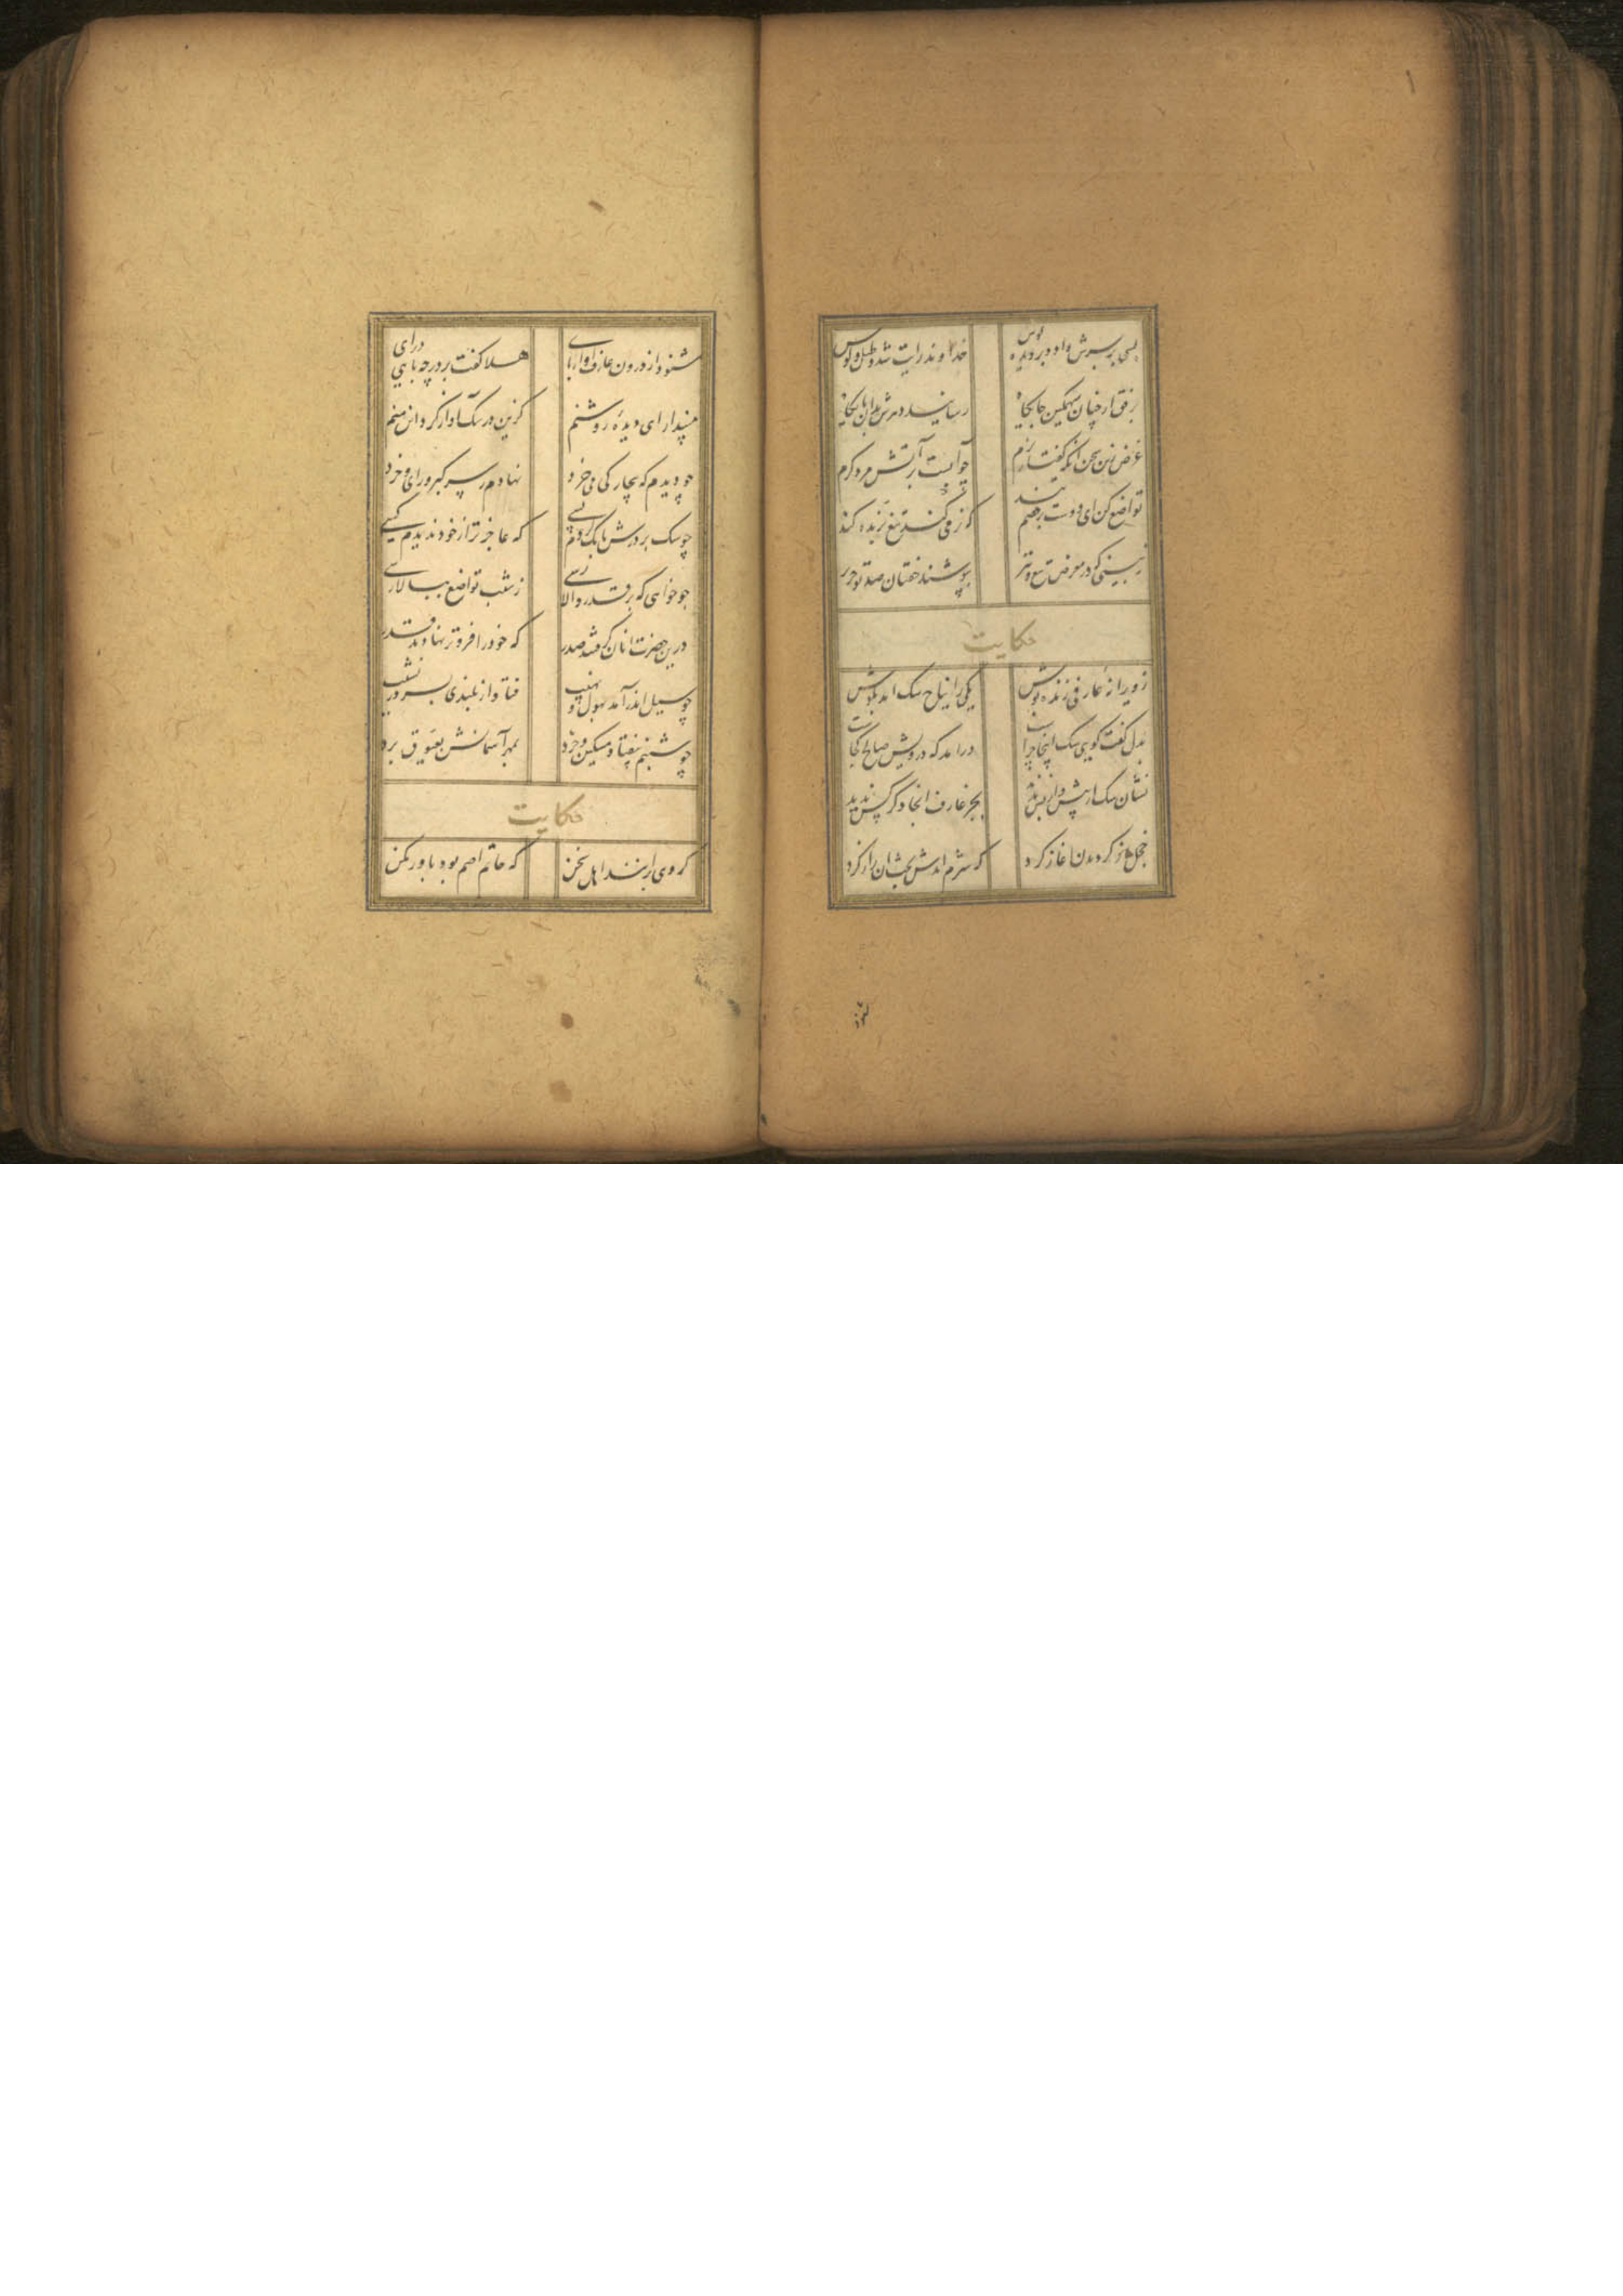 بسی بر سرش داد و بر دیده بوس خداوند رایت شد و طبل و کوس
برفق از چنان سهمکین جایکاه رسانید دهرش بدان پایکاه
غرض زین سخن انکه کفتار نرم چو آبست بر آتش مرد کرم
تواضع کن ای دوست با خصم تند که نرمی کند تیغ برنده کند
نبینی که در معرض تیغ و تیر بپوشند خفتان صد تو حریر
حکایت
ز ویرانهٔ عارفی ژنده پوش یکی را نباح سک امد بکوش
بدل کفت کویی سک اینجا چراست درامد که درویش صالح کجاست
نشان سک از پیش و از پس ندید بجز عارف انجا دکر کس ندید
خجل باز کردیدن اغاز کرد که شرم امدش بحث ان راز کرد
شنود از درون عارف اواز پای هلا کفت بر در چه پایی درای
مپندار ای دیدهٔ روشنم کزین در سک آواز کرد این منم
چو دیدم که بیچارکی می خرد نهادم ز سر کبر و رای و خرد
چو سک بر درش بانک کردم بسی که عاجزتر از خود ندیدم کسی
چو خواهی که در قدر والا رسی ز شیب تواضع ببالا رسی
درین حضرت انان کرفتند صدر که خود را فروتر نهادند قدر
چو سیل اندر آمد بهول و نهیب فتاد از بلندی بسر در نشیب
چو شبنم بیفتاد مسکین و خرد بمهر آسمانش بعیوق برد
حکایت
کروهی برانند از اهل سخن که حاتم اصم بود باور مکن